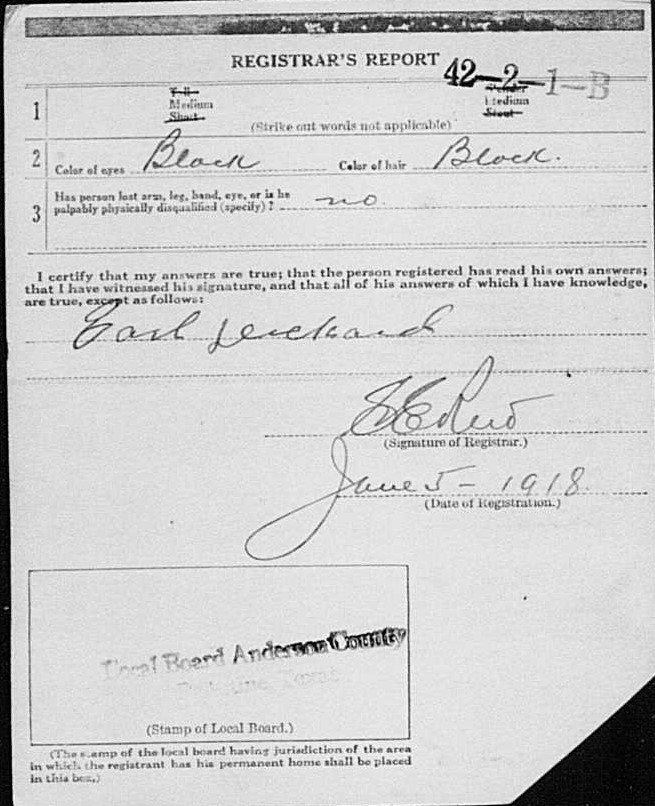 REGISTRAR'S REPORT
42—2—1—B
1
Tall
Medium
Short
Slender
Medium
Stout
(Strike out words not applicable)
2 Color of eyes Black Color of hair Black.
3 Has person lost arm, leg, hand, eye, or is he
palpably physically disqualified (specify)? no.
I certify that my answers are true; that the person registered has read his own answers;
that I have witnessed his signature, and that all of his answers of which I have knowledge,
are true, except as follows:
Earl
(Signature of Registrar.)
June 5 - 1918
(Date of Registration.)
Local Board Anderson County
Texas
(Stamp of Local Board.)
(The stamp of the local board having jurisdiction of the area
in which the registrant has his permanent home shall be placed
in this box.)